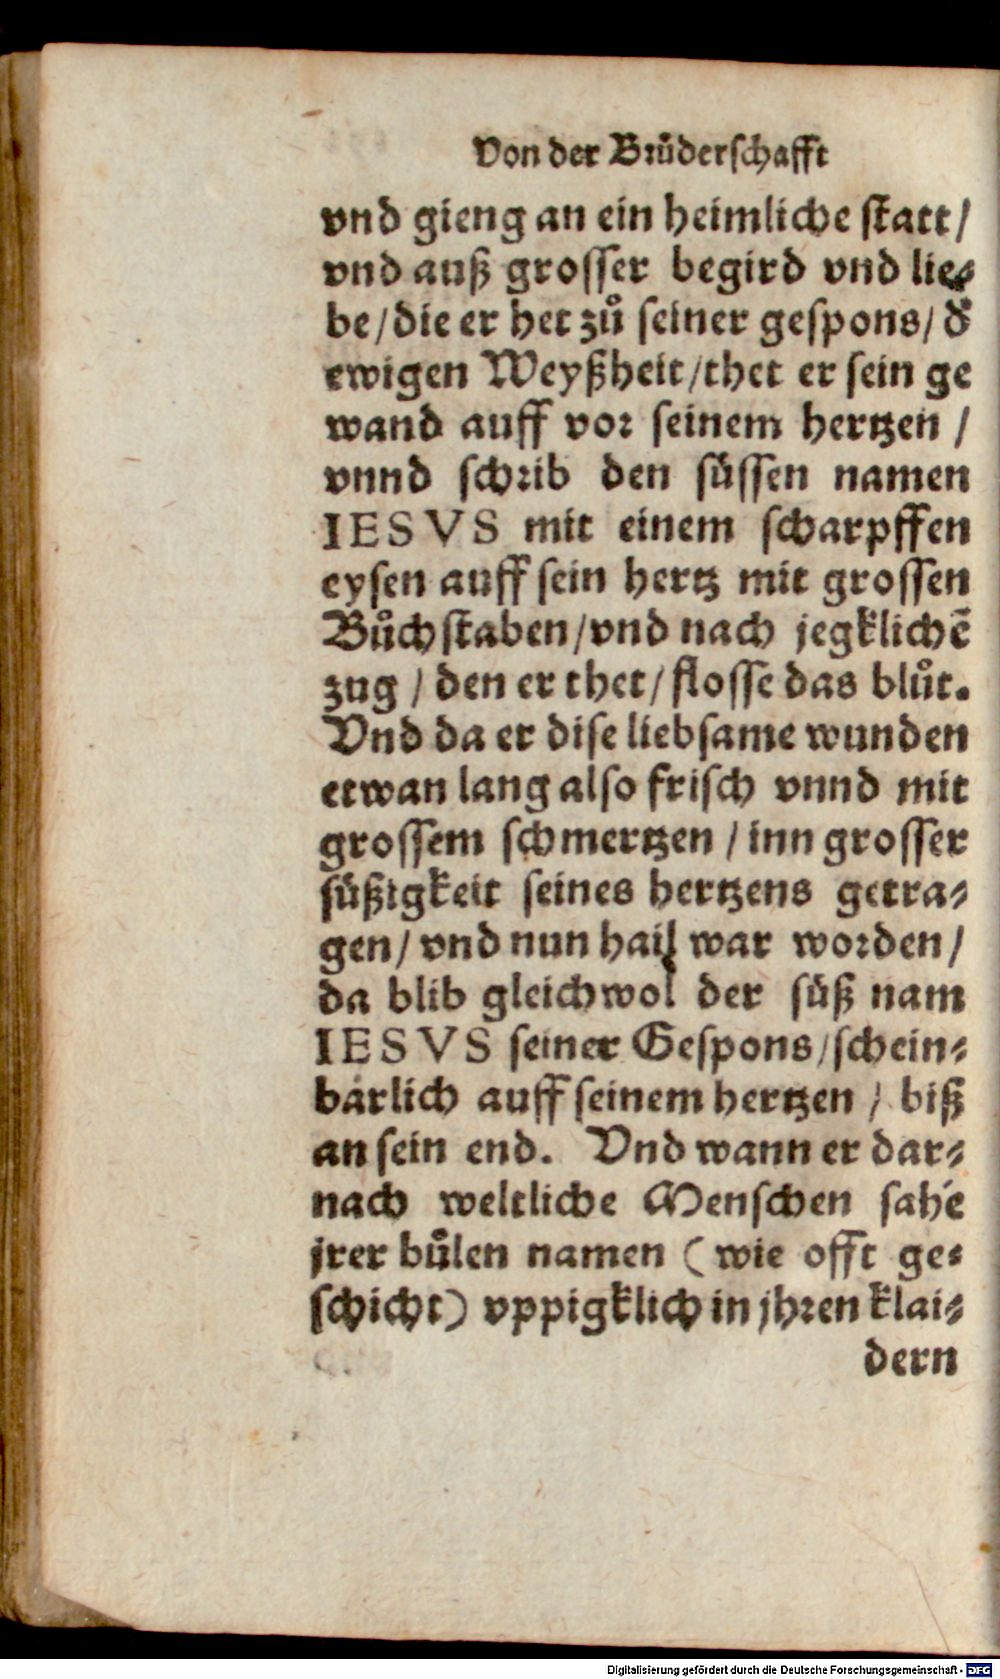 Von der Brůderschafft
vnd gieng an ein heimliche statt/
vnd auß grosser begird vnd lie⸗
be/die er het zů seiner gespons/ d̕
ewigen Weyßheit/thet er sein ge
wand auff vor seinem hertzen /
vnnd schrib den süssen namen
IESVS mit einem scharpffen
eysen auff sein hertz mit grossen
Bůchstaben/vnd nach jegklichē
zug / den er thet/ flosse das blůt.
Vnd da er dise liebsame wunden
etwan lang also frisch vnnd mit
grossem schmertzen / inn grosser
süßigkeit seines hertzens getra⸗
gen/ vnd nun hail war worden/
da blib gleichwol der süß nam
IESVS seiner Gespons/schein⸗
barlich auff seinem hertzen / biß
an sein end. Vnd wann er dar⸗
nach weltliche Menschen sahe
jrer bůlen namen (wie offt ge⸗
schicht) vppigklich in jhren klai⸗
dern
Digitalisierung gefördert durch die Deutsche Forschungsgemeinschaft - DFG